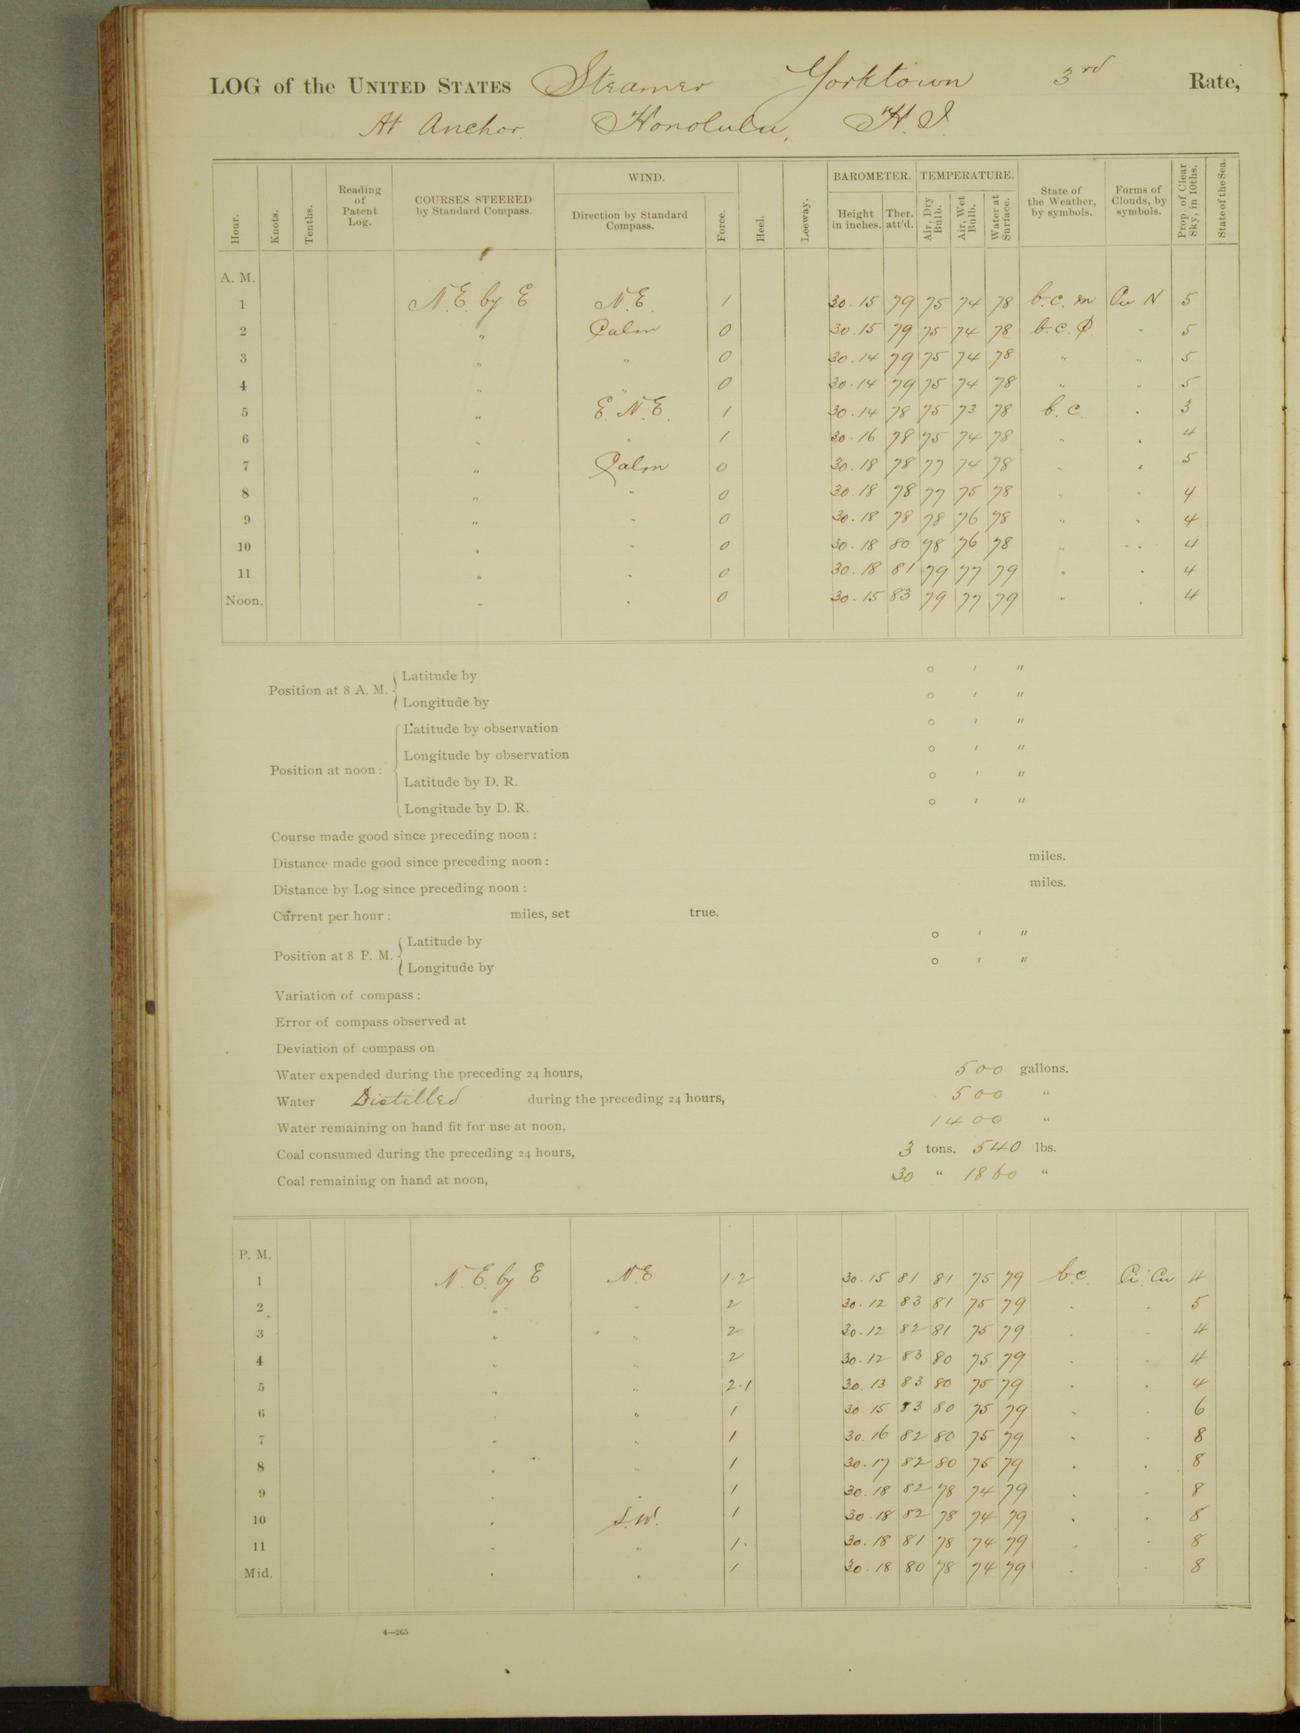 LOG of the UNITED STATES Steamer Yorktown 3rd Rate,
At Anchor. Honolulu, H.I.
Hour. Knots. Tenths. Reading of Patent Log. COURSES STEERED by Standard Compass. WIND. Direction by Standard Compass. Force. Heel. Leeway. BAROMETER. Height in inches. Ther. att'd. TEMPERATURE. Air, Dry Bulb. Air, Wet Bulb. Water at Surface. State of the Weather, by symbols. Forms of Clouds, by symbols. Prop. of Clear Sky, in 10ths. State of the Sea.
A. M.
1 N.E. by E N.E. 1 30.15 79 75 74 78 b.c. m Cu N 5
2 " Calm 0 30.15 79 75 74 78 b.c. " 5
3 " " 0 30.14 79 75 74 78 " " 5
4 " " 0 30.14 79 75 74 78 " " 5
5 " E.N.E. 1 30.14 78 75 73 78 b.c. " 3
6 " " 1 30.16 78 75 74 78 " " 4
7 " Calm 0 30.18 78 77 74 78 " " 5
8 " " 0 30.18 78 77 75 78 " " 4
9 " " 0 30.18 78 78 76 78 " " 4
10 " " 0 30.18 80 78 76 78 " " 4
11 " " 0 30.18 81 79 77 79 " " 4
Noon. " " 0 30.15 83 79 77 79 " " 4
Position at 8 A. M. Latitude by ° ' "
Longitude by ° ' "
Position at noon: Latitude by observation ° ' "
Longitude by observation ° ' "
Latitude by D. R. ° ' "
Longitude by D. R. ° ' "
Course made good since preceding noon:
Distance made good since preceding noon: miles.
Distance by Log since preceding noon: miles.
Current per hour: miles, set true.
Position at 8 P. M. Latitude by ° ' "
Longitude by ° ' "
Variation of compass:
Error of compass observed at
Deviation of compass on
Water expended during the preceding 24 hours, 500 gallons.
Water Distilled during the preceding 24 hours, 500 "
Water remaining on hand fit for use at noon, 1400 "
Coal consumed during the preceding 24 hours, 3 tons, 540 lbs.
Coal remaining on hand at noon, 30 " 1860 "
P. M.
1 N.E. by E N.E 1.2 30.15 81 81 75 79 b.c. Ci. Cu 4
2 " " 2 30.12 83 81 75 79 " " 5
3 " " 2 30.12 82 81 75 79 " " 4
4 " " 2 30.12 83 80 75 79 " " 4
5 " " 2.1 30.13 83 80 75 79 " " 4
6 " " 1 30.15 83 80 75 79 " " 6
7 " " 1 30.16 82 80 75 79 " " 8
8 " " 1 30.17 82 80 75 79 " " 8
9 " " 1 30.18 82 78 74 79 " " 8
10 " S.W. 1 30.18 82 78 74 79 " " 8
11 " " 1. 30.18 81 78 74 79 " " 8
Mid. " " 1 30.18 80 78 74 79 " " 8
4—265